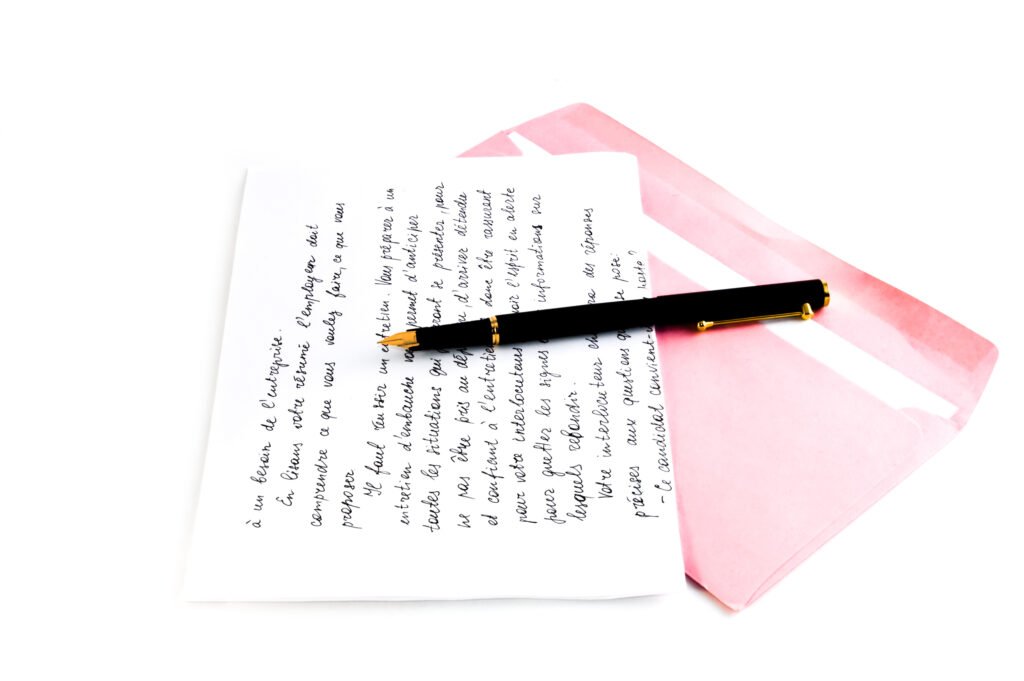 à un besoin de l'entreprise.
En lisans votre résumé l'employeur doit
comprendre ce que vous voulez faire, ce que vous
proposer
Il faut réussir un entretien. Vous préparer à un
entretien d'embauche permet d'anticiper
toutes les situations qui se présenter, pour
ne pas être pris au d'arriver détendu
et confiant à l'entretien donc être rassurant
pour votre interlocuteurs l'esprit en alerte
pour guetter les signes informations sur
lesquels rebondir.
Votre interlocuteur des réponses
précises aux questions se pose
- Ce candidat